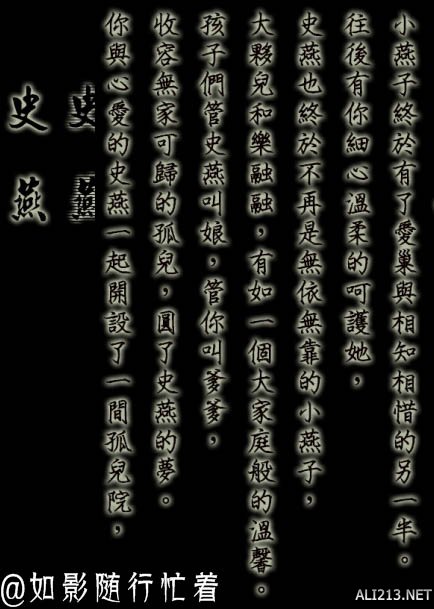 史燕
史燕
你與心愛的史燕一起開設了一間孤兒院，
收容無家可歸的孤兒，圓了史燕的夢。
孩子們管史燕叫娘，管你叫爹爹，
大夥兒和樂融融，有如一個大家庭般的溫馨。
史燕也終於不再是無依無靠的小燕子，
往後有你細心溫柔的呵護她，
小燕子終於有了愛巢與相知相惜的另一半。
@如影随行忙着
ALI213.NET